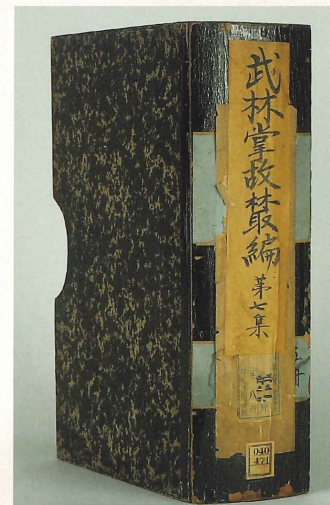 武林掌故叢編
第七集
040
471